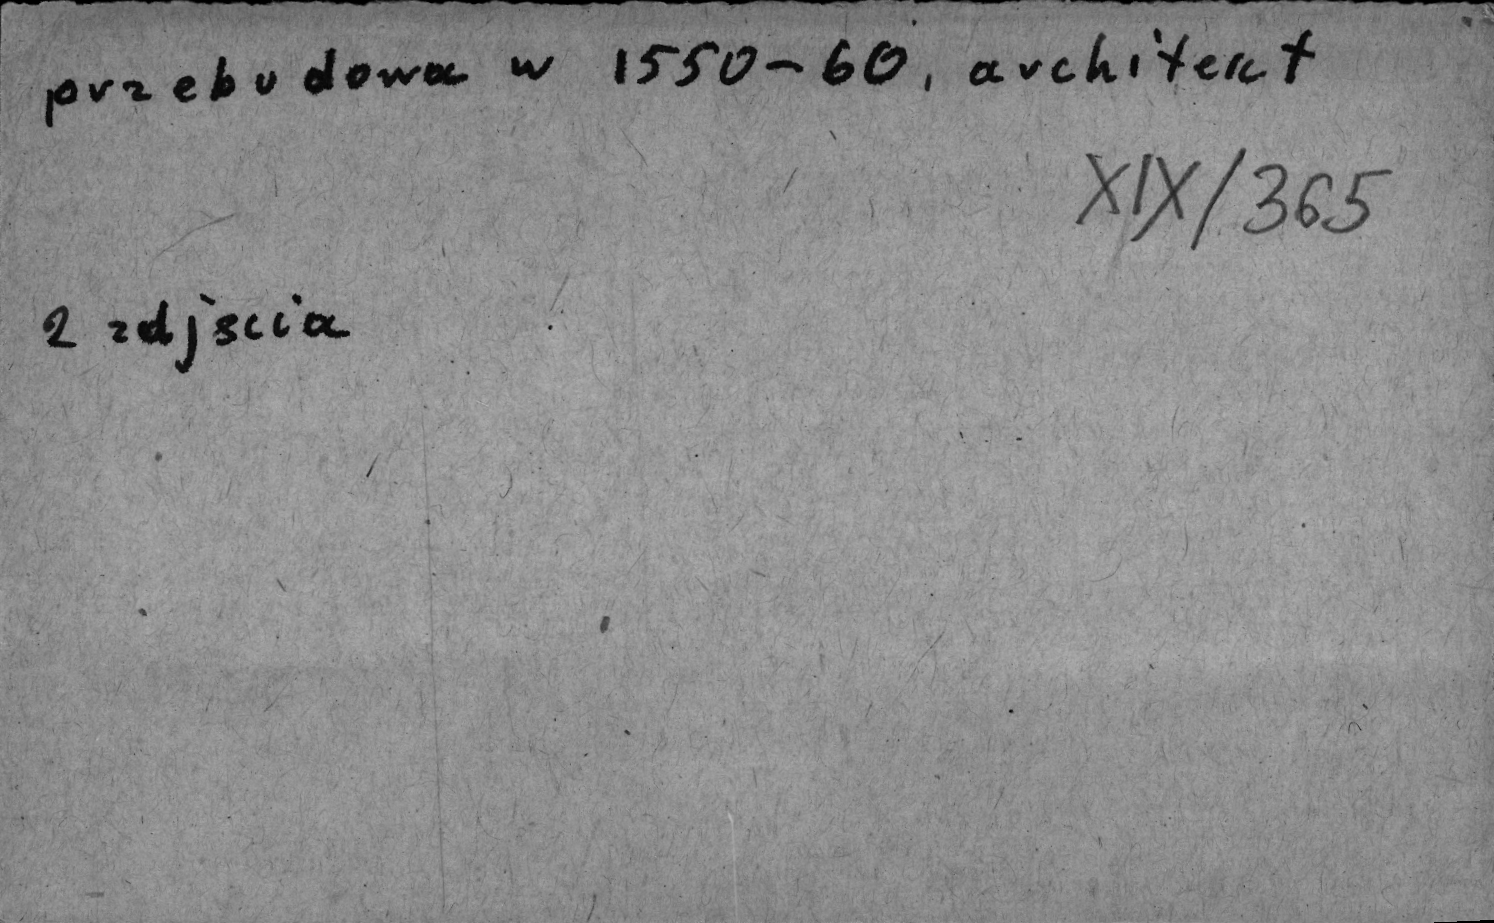 przebudowa w 1550-60, architekt
XIX/365
2 zdjścia